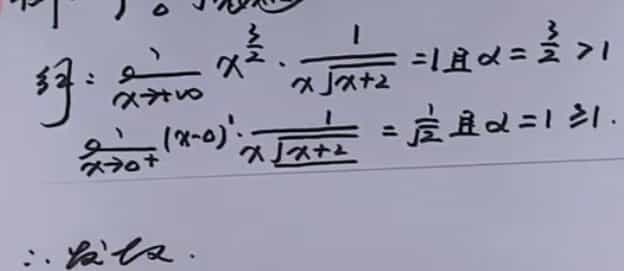 解: lim x→+∞ x^{3/2} · 1/(x√(x+2)) = 1 且 α = 3/2 > 1
lim x→0⁺ (x-0)^1 · 1/(x√(x+2)) = 1/√2 且 α = 1 ≥ 1.
∴ 发散.